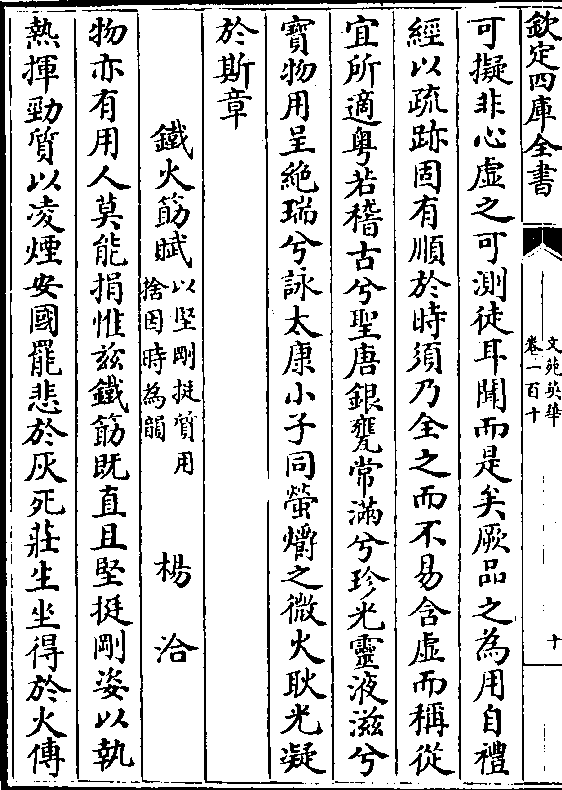 欽定四庫全書
文苑英華
卷一百十
十
可擬非心虛之可測徒耳聞而是矣厥品之為用自禮
經以疏跡固有順於時須乃全之而不易含虛而稱從
宜所適粤若稽古兮聖唐銀甕常滿兮珍光靈液滋兮
寶物用呈絶瑞兮詠太康小子同螢爝之微火耿光凝
於斯章
鐵火筯賦以堅剛挺質用
捨因時為韻
楊洽
物亦有用人莫能捐惟兹鐵筯既直且堅挺剛姿以執
熱揮勁質以凌煙安國罷悲於灰死莊生坐得於火傳